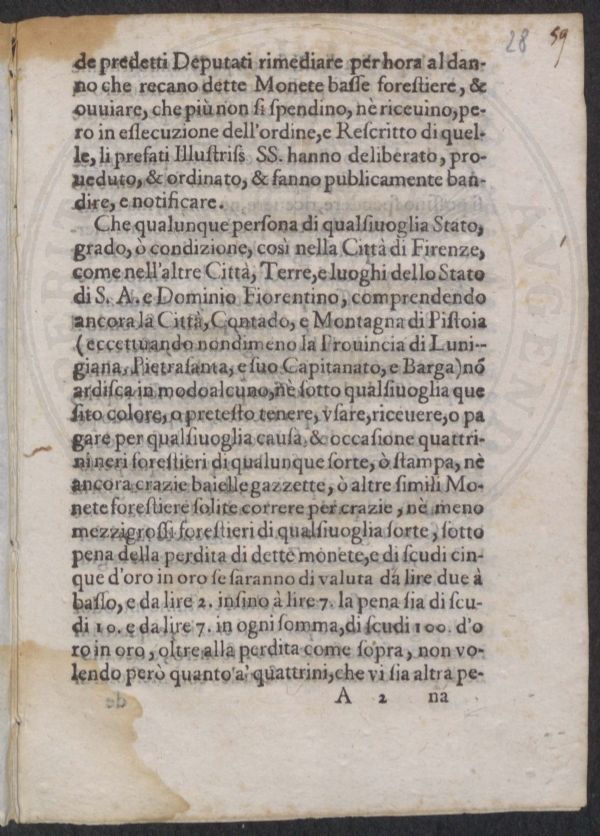 28 59
de predetti Deputati rimediare per hora al dan-
no che recano dette Monete baſſe foreſtiere, &
ouuiare, che più non ſi ſpendino, nè riceuino, pe-
ro in eſſecuzione dell'ordine, e Reſcritto di quel-
le, li prefati Illuſtriſs SS. hanno deliberato, pro-
ueduto, & ordinato, & fanno publicamente ban-
dire, e notificare.
Che qualunque perſona di qualſiuoglia Stato,
grado, ò condizione, così nella Città di Firenze,
come nell'altre Città, Terre, e luoghi dello Stato
di S. A. e Dominio Fiorentino, comprendendo
ancora la Città, Contado, e Montagna di Piſtoia
(eccettuando nondimeno la Prouincia di Luni-
giana, Pietraſanta, e ſuo Capitanato, e Barga) nõ
ardiſca in modo alcuno, nè ſotto qualſiuoglia que
ſito colore, o preteſto tenere, vſare, riceuere, o pa
gare per qualſiuoglia cauſa, & occaſione quattri-
ni neri foreſtieri di qualunque ſorte, ò ſtampa, nè
ancora crazie baielle gazzette, ò altre ſimili Mo-
nete foreſtiere ſolite correre per crazie, nè meno
mezzigroſſi foreſtieri di qualſiuoglia ſorte, ſotto
pena della perdita di dette monete, e di ſcudi cin-
que d'oro in oro ſe ſaranno di valuta da lire due à
baſſo, e da lire 2. inſino à lire 7. la pena ſia di ſcu-
di 10. e da lire 7. in ogni ſomma, di ſcudi 100. d'o
ro in oro, oltre alla perdita come ſopra, non vo-
lendo però quanto a' quattrini, che vi ſia altra pe-
A 2 na